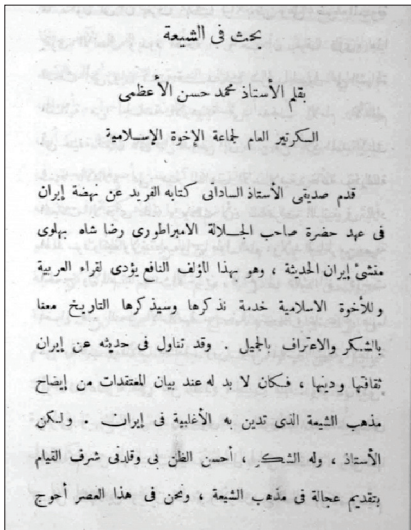 بحث فى الشيعة
بقلم الأستاذ محمد حسن الأعظمى
السكرتير العام لجماعة الاخوة الإسلامية
قدم صديقى الأستاذ الساداتى كتابه الفريد عن نهضة إيران
فى عهد حضرة صاحب الجلالة الامبراطورى رضا شاه بهلوى
منشئ إيران الحديثة ، وهو بهذا المؤلف النافع يؤدى لقراء العربية
وللأخوة الاسلامية خدمة نذكرها وسيذكرها التاريخ معنا
بالشكر والاعتراف بالجميل . وقد تناول فى حديثه عن إيران
ثقافتها ودينها ، فكان لا بد له عند بيان المعتقدات من إيضاح
مذهب الشيعة الذى تدين به الأغلبية فى إيران . ولكن
الأستاذ ، وله الشكر ، أحسن الظن بى وقلدنى شرف القيام
بتقديم عجالة فى مذهب الشيعة ، ونحن فى هذا العصر أحوج